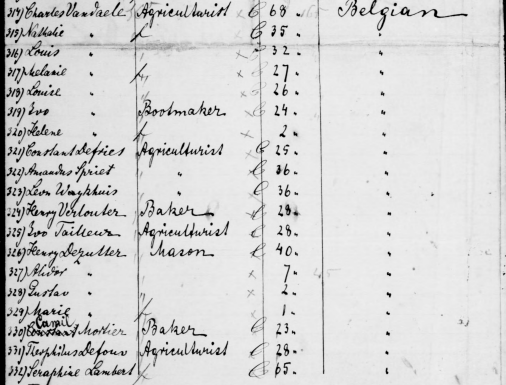 314) Charles Vandaele Agriculturist x C 68 „ Belgian
315) Nathalie „ C 35 „ „
316) Louis „ x 32 „ „
317) Melanie „ x 27 „ „
318) Louise „ x 26 „ „
319) Ivo „ Bootmaker x C 24 „ „
320) Helene „ x 2 „ „
321) Constant Defries Agriculturist C 25 „ „
322) Amandus Spriet „ „ C 36 „ „
323) Leon „ C 36 „ „
324) Henry Verlouter Baker C 28 „ „
325) Ivo Tailleur Agriculturist C 28 „ „
326) Henry Dezutter Mason C 40 „ „
327) Alidor „ x 7 „ „
328) Gustav „ x 2 „ „
329) Marie „ x 1 „ „
Camil
330) Constant Mortier Baker C 23 „ „
331) Theophilus Defour Agriculturist C 28 „ „
332) Seraphine Lambert C 65 „ „